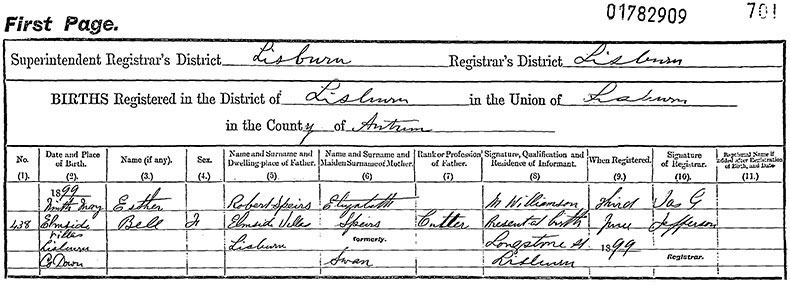 First Page.
01782909 701
Superintendent Registrar's District Lisburn Registrar's District Lisburn
BIRTHS Registered in the District of Lisburn in the Union of Lisburn
in the County of Antrim
No. Date and Place of Birth. Name (if any). Sex. Name and Surname and Dwelling-place of Father. Name and Surname and Maiden Surname of Mother. Rank or Profession of Father. Signature, Qualification and Residence of Informant. When Registered. Signature of Registrar. Baptismal Name if added after Registration of Birth, and Date
(1). (2). (3). (4). (5). (6) (7) (8) (9). (10). (11).
1899
Ninth May Esther Robert Speirs Elizabeth M Williamson Third Jas G
438 Elmside Bell F Elmside Villas Speirs Cutter Present at birth June Jefferson
Villas
Lisburn Lisburn formerly. Longstone St 1899 Registrar.
Co Down Swan Lisburn